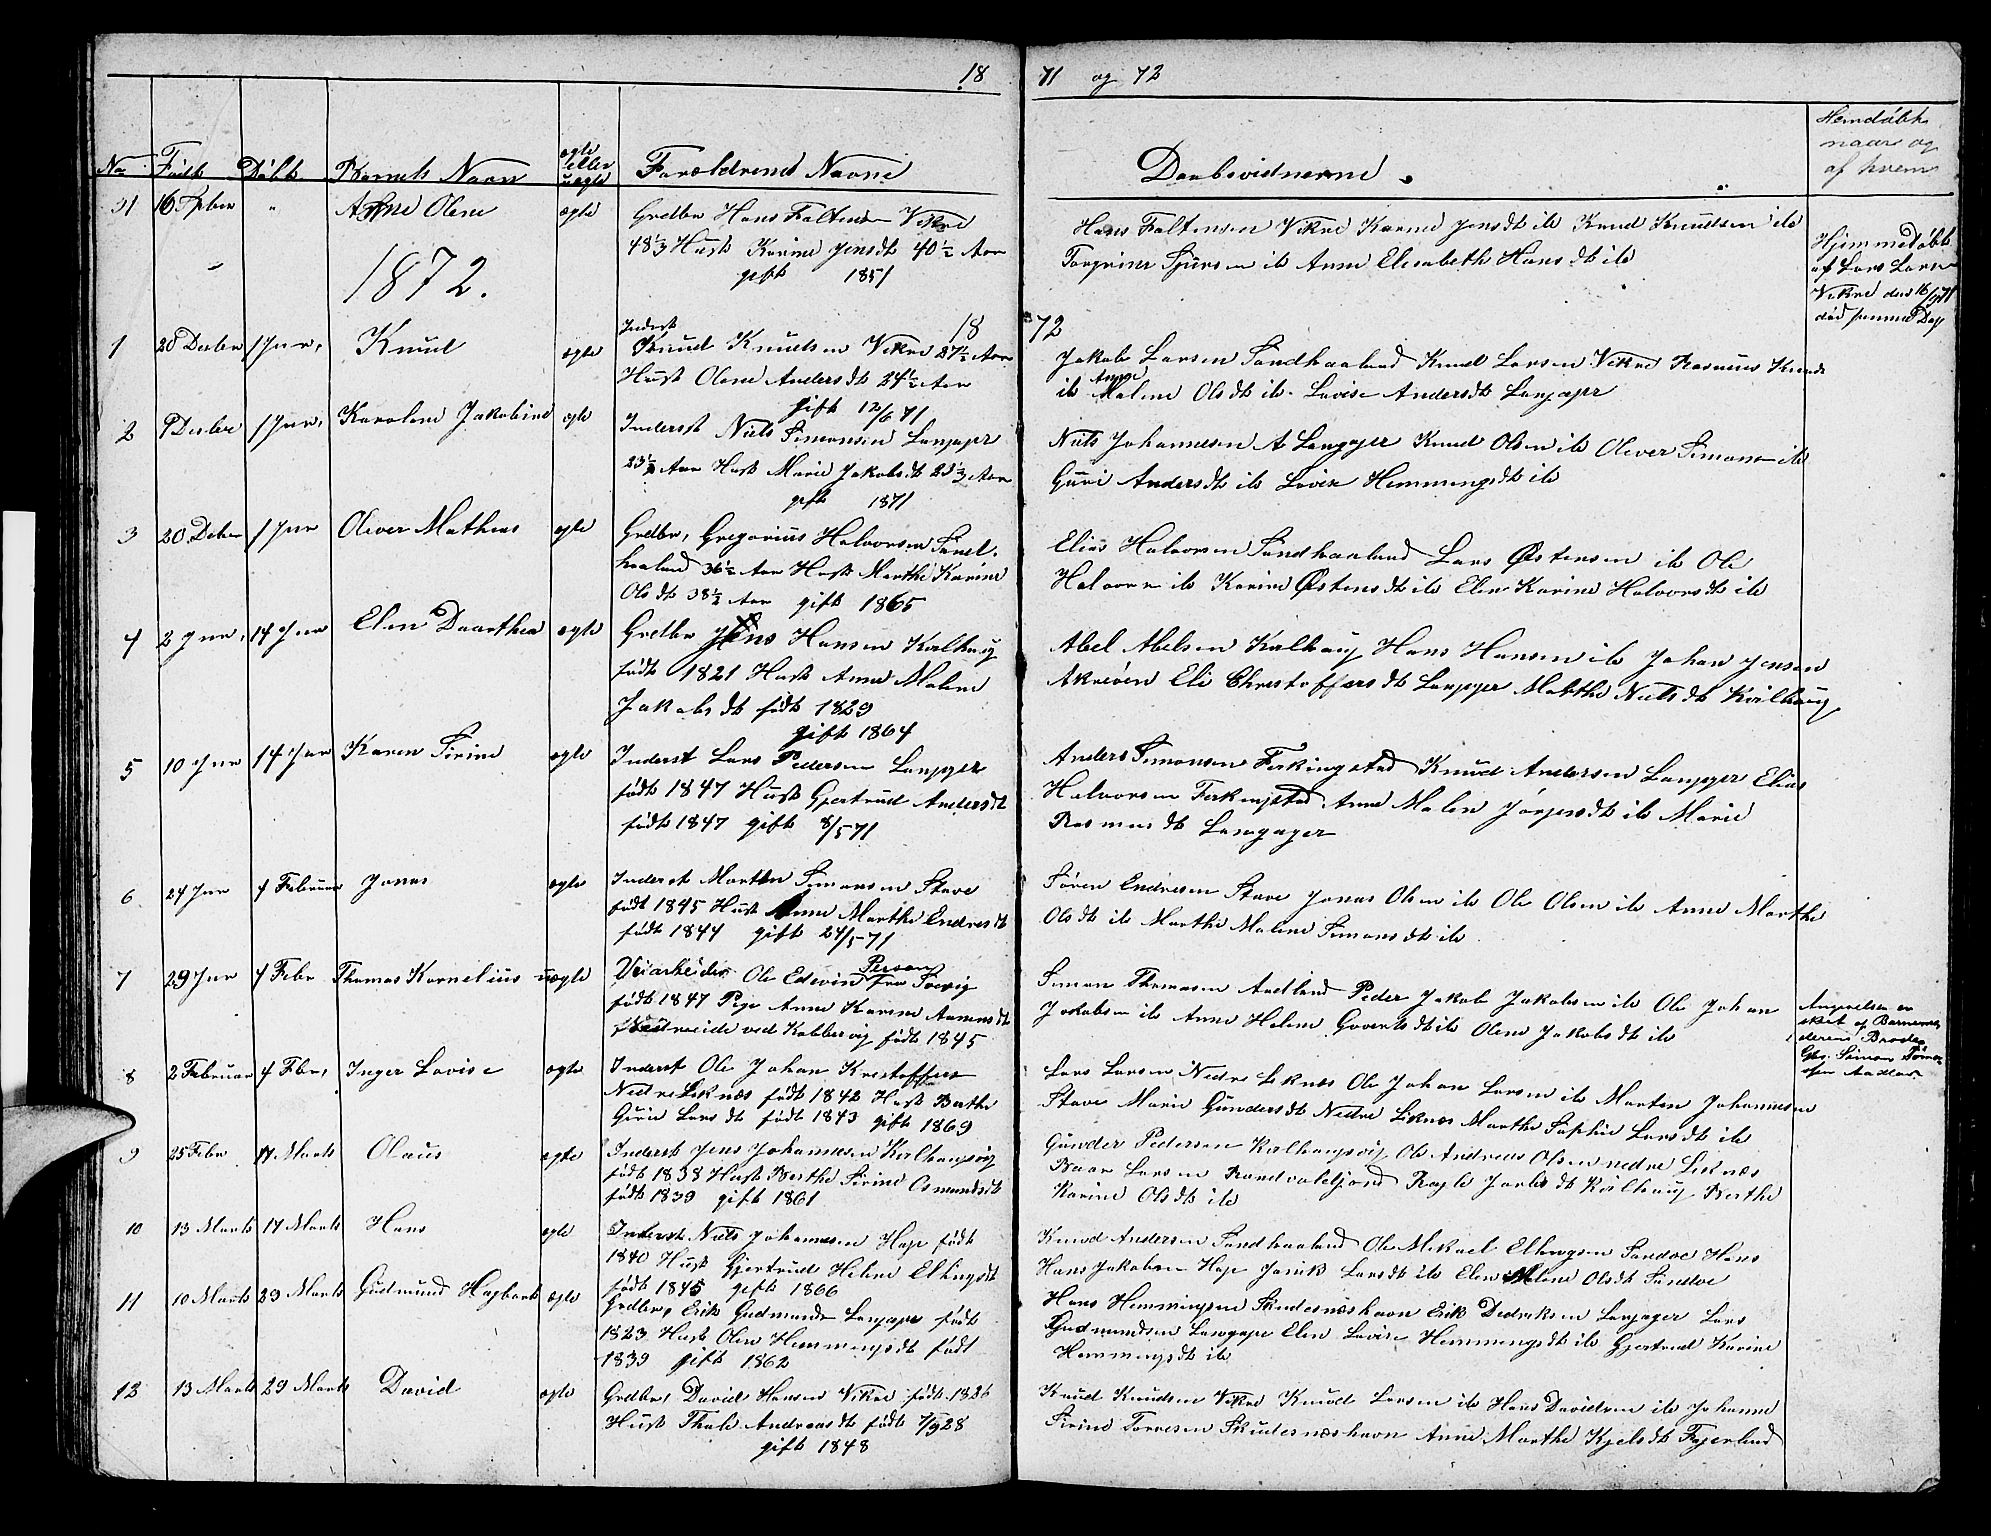 18 71 og 72
No Født Døbt Barnets Navn ægte eller uægte Forældrenes Navne
Daabsvidnerne.
Hemdøbt
naar og
af hvem
31 16 Spbr " Anne Olene ægte Grdbr Hans Faltensen Vikre
48⅓ Hust Karine Jensdt 40½ Aar
gift 1851
Hans Faltensen Vikre Karine Jensdt ib Knud Knudsen ib
Torgrim Sjursen ib Anne Elisabeth Hansdt ib
Hjemmedøbt
af Lars Larsen
Vikre den 16/9 71
død samme Dag
1872.
18 72
1 28 Decbr 1 Jnr, Knud ægte Inderst
Knud Knudsen Vikre 27½ Aar
Hust Olene Andersdt 24½ Aar
gift 12/6 71
Jakob Larsen Sandhaaland Knud Larsen Vikre Rasmus Knuds
ib Anne Malene Olsdt ib. Lovise Andersdt Langager
2 9 Decbr 1 Jnr, Karoline Jakobine ægte Inderst Niels Simonsen Langager
23½ Aar Hust Marie Jakobsdt 23⅓ Aar
gift 1871
Niels Johannesen A Langager Knud Olsen ib Oliver Simonsen ib
Guri Andersdt ib Lovise Hemmingsdt ib
3 20 Decbr 1 Jnr Oliver Mathias ægte Grdbr, Gregorius Halvorsen Sand-
haaland 36½ Aar Hust Marthe Karine
Olsdt 38½ Aar gift 1865
Elias Halvorsen Sandhaaland Lars Østensen ib Ole
Halvorsen ib Karine Østensdt ib Elen Karine Halvorsdt ib
4 2 Jnr, 14 Jnr Elen Daarthea ægte Grdbr Jens Hansen Kolhaug
født 1821 Hust Anne Malene
Jakobsdt født 1829
gift 1864
Abel Abelsen Kolhaug Hans Hansen ib Johan Jensen
Akreøen Eli Christoffersdt Langager Malthe Nielsdt Kolhaug
5 10 Jnr 14 Jnr Karen Sirine ægte Inderst Lars Pedersen Langager
født 1847 Hust Gjertrud Andersdt
født 1847 gift 8/5 71
Anders Simonsen Ferkingstad Knud Andersen Langager Elias
Halvorsen Ferkingstad Anne Malene Jørgensdt ib Marie
Rasmusdt Langager
6 24 Jnr 4 Februar Jonas ægte Inderst Morten Simonsen Stave
født 1845 Hust Anne Marthe Endresdt
født 1844 gift 24/5 71
Søren Endresen Stave Jonas Olsen ib Ole Olsen ib Anne Marthe
Olsdt ib Marthe Malene Simonsdt ib
7 29 Jnr 4 Febr Thomas Kornelius uægte Veiarbeider Ole Edevin Person fra Soevig
født 1847 Pige Anne Karine Aamundsdt
ved Kobbervig født 1845
Simon Thomasen Aadland Peder Jakob Jakobsen ib Ole Johan
Jakobsen ib Anne Helene Govertsdt ib Olene Jakobsdt ib
Angivelsen er
sket af Barnemo-
derens Broder
Gbr. Simon Tomas-
sen Aadland
8 2 Februar 4 Fbr, Inger Lovise ægte Inderst Ole Johan Kristoffersen
Nedre Liknæs født 1842 Hust Berthe
Gurine Larsdt født 1843 gift 1869
Lars Larsen Nedre Liknæs Ole Johan Larsen ib Morten Johannesen
Stave Marie Gundersdt Nedre Liknæs Marthe Sophie Larsdt ib
9 25 Febr 17 Marts Olaus ægte Inderst Jens Johannesen Kolhaugsvig
født 1838 Hust Berthe Sirine Osmundsdt
født 1839 gift 1861
Gunder Pedersen Kolhaugsvig Ole Andreas Olsen nedre Liknæs
Baar Larsen Ragle Jarlsdt Kolhaug Berthe
Karine Olsdt ib
10 13 Marts 17 Marts Hans ægte Inderst Niels Johannesen Hage født
1840 Hust Gjertrud Helene Ellingsdt
født 1845 gift 1866
Knud Andersen Sandhaaland Ole Mikael Ellingsen Sandve Hans
Hans Jakobsen Hage Janik Larsdt ib Elen Malene Olsdt Sandve
11 10 Marts 23 Marts Gudmund Hagbart ægte Grdbr, Erik Gudmundsen Langager født
1823 Hust Olene Hemmingsdt født
1839 gift 1862
Hans Hemmingsen Skudesnæshavn Erik Didriksen Langager Lars
Gudmundsen Langager Elen Lovise Hemmingsdt ib Gjertrud Karine
Hemmingsdt ib
12 13 Marts 29 Marts David ægte Grdbr, David Hansen Vikre født 1826
Hust Thale Andreasdt født 7/9 28
gift 1848
Knud Knudsen Vikre Knud Larsen ib Hans Davidsen ib Johanne
Sirine Torresen Skudesnæshavn Anne Marthe Kjelsdt Fagerland